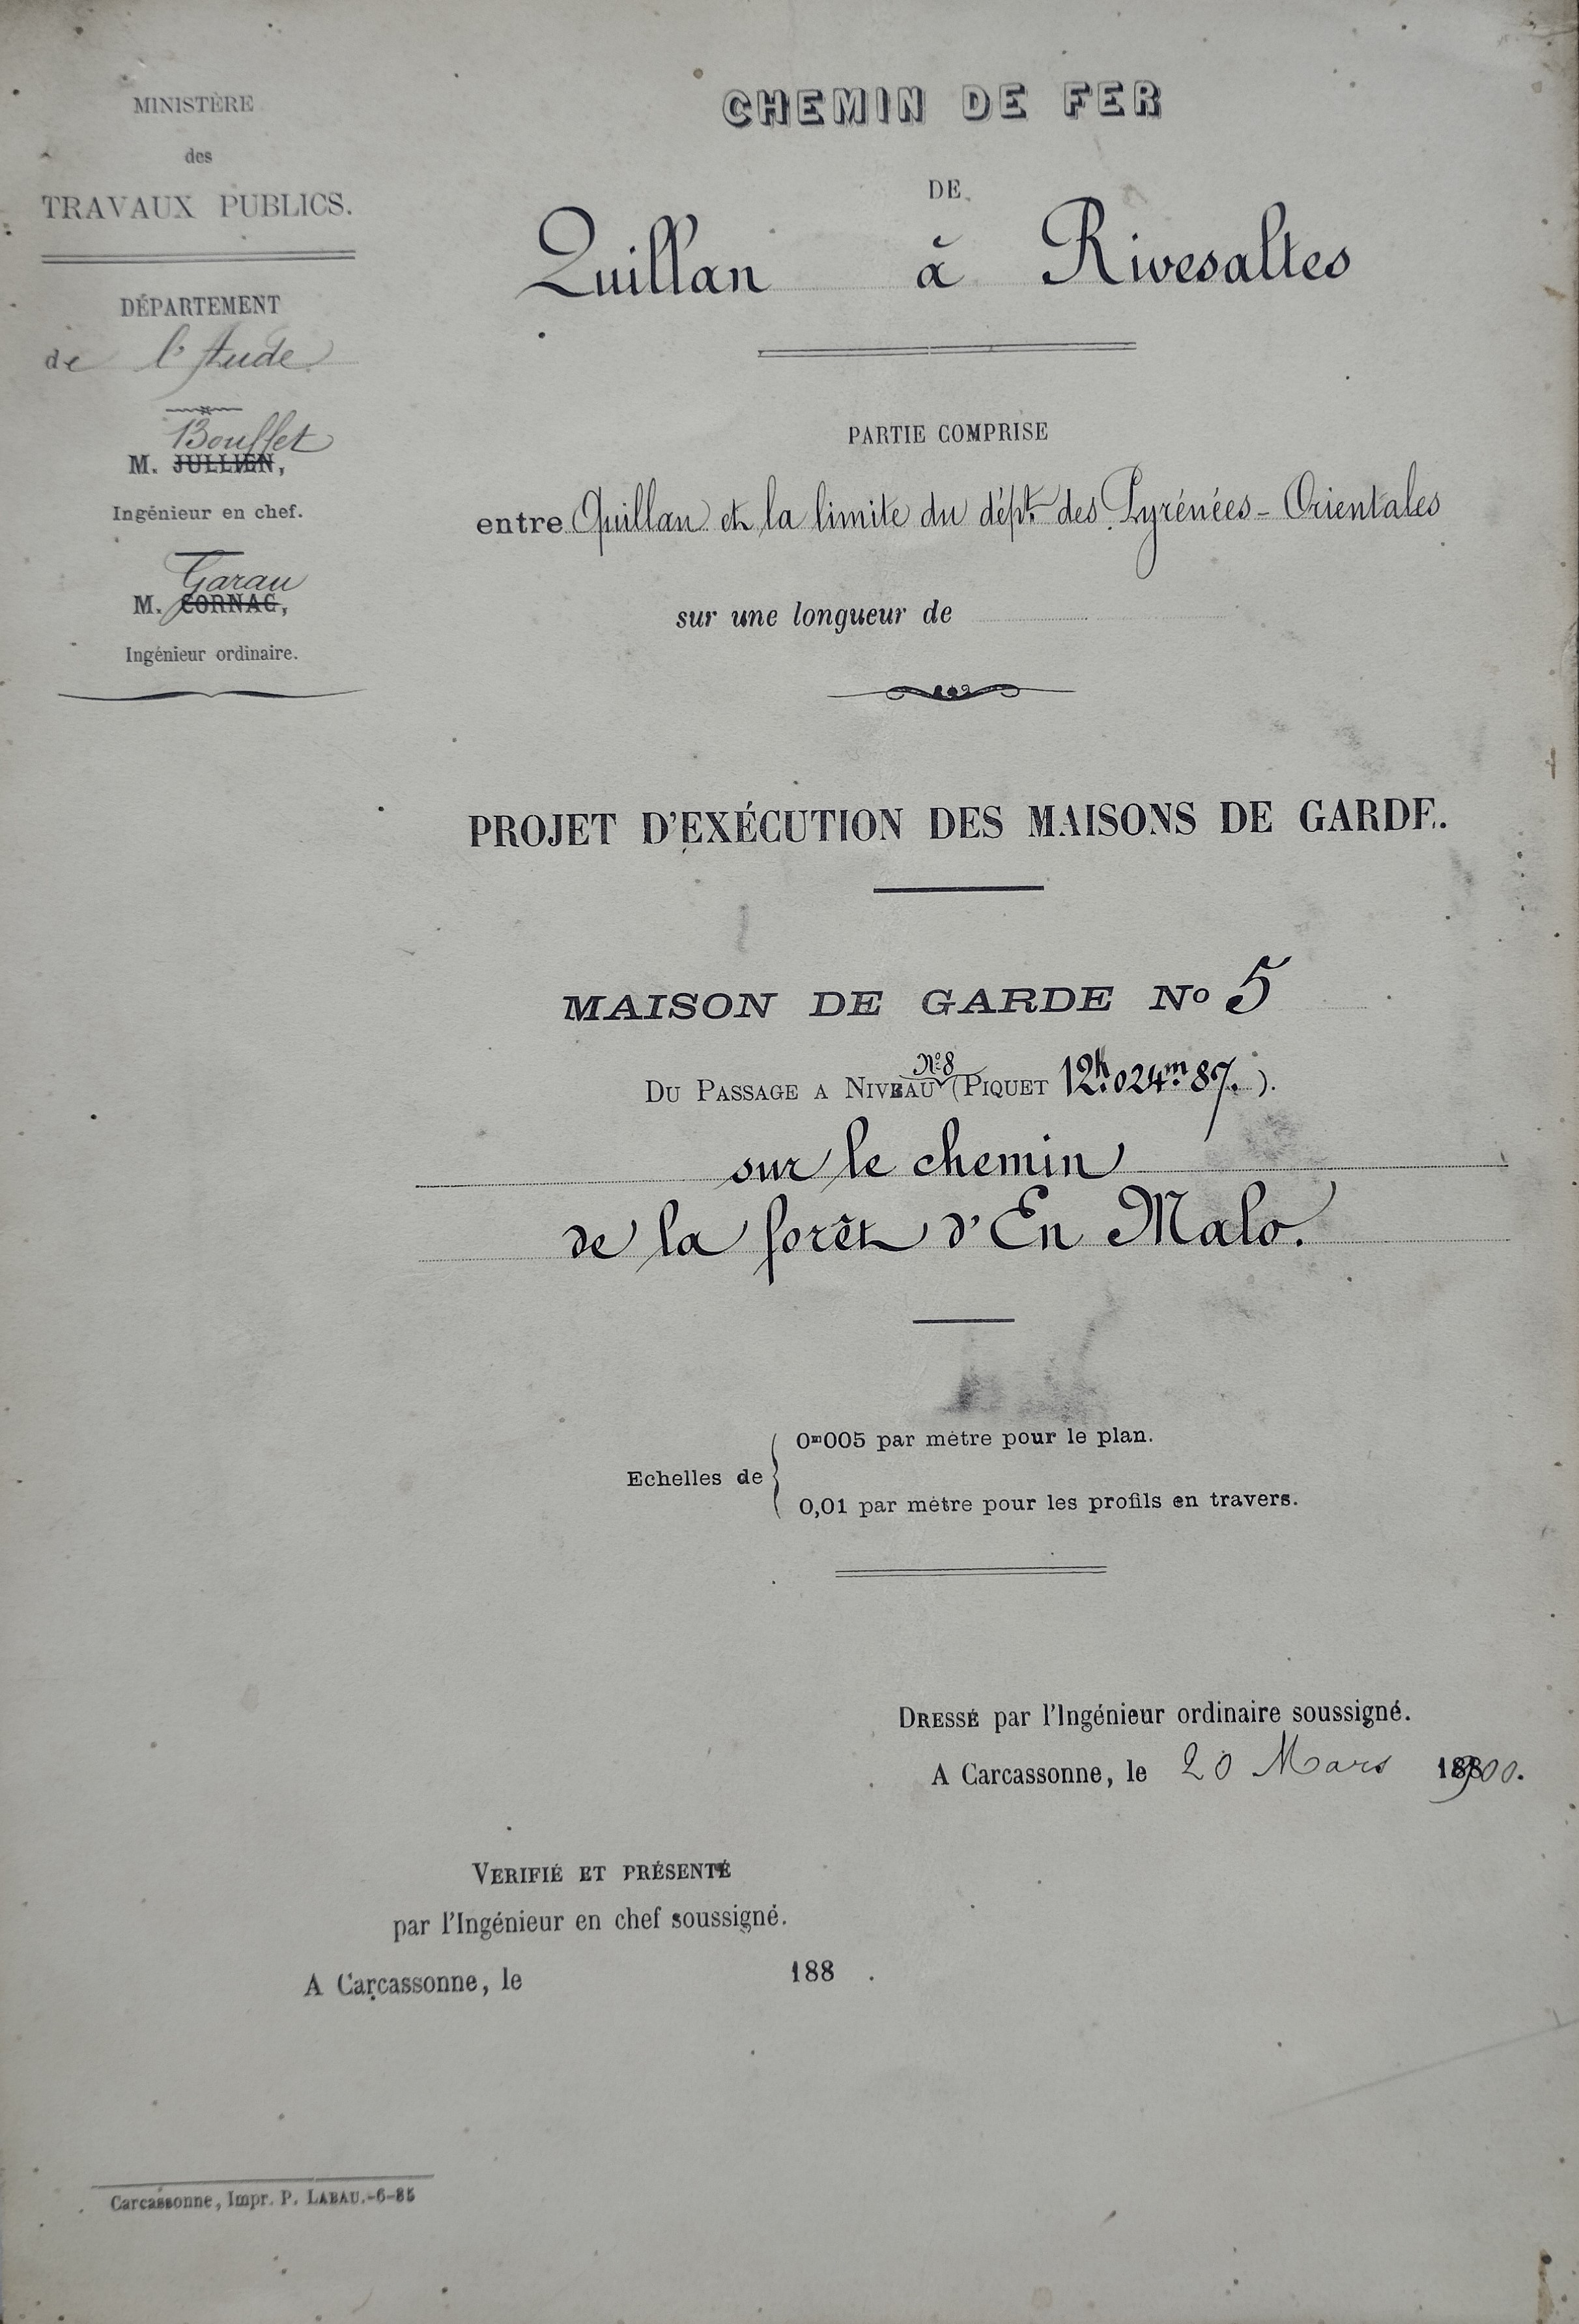 MINISTÈRE
des
TRAVAUX PUBLICS.
DÉPARTEMENT
de l'Aude
Bouffet
M. JULLIEN,
Ingénieur en chef.
Garau
M. CORNAC,
Ingénieur ordinaire.
CHEMIN DE FER
DE
Quillan à Rivesaltes
PARTIE COMPRISE
entre Quillan et la limite du dépt. des Pyrénées-Orientales
sur une longueur de
PROJET D'EXÉCUTION DES MAISONS DE GARDE.
MAISON DE GARDE No 5
N° 8
DU PASSAGE A NIVEAU (PIQUET 12k.024m.87.).
sur le chemin
de la forêt d'En Malo.
Echelles de
0m005 par mètre pour le plan.
0,01 par mètre pour les profils en travers.
DRESSÉ par l'Ingénieur ordinaire soussigné.
A Carcassonne, le 20 Mars 1900.
VERIFIÉ ET PRÉSENTÉ
par l'Ingénieur en chef soussigné.
A Carcassonne, le 188 .
Carcassonne, Impr. P. LABAU.-6-85